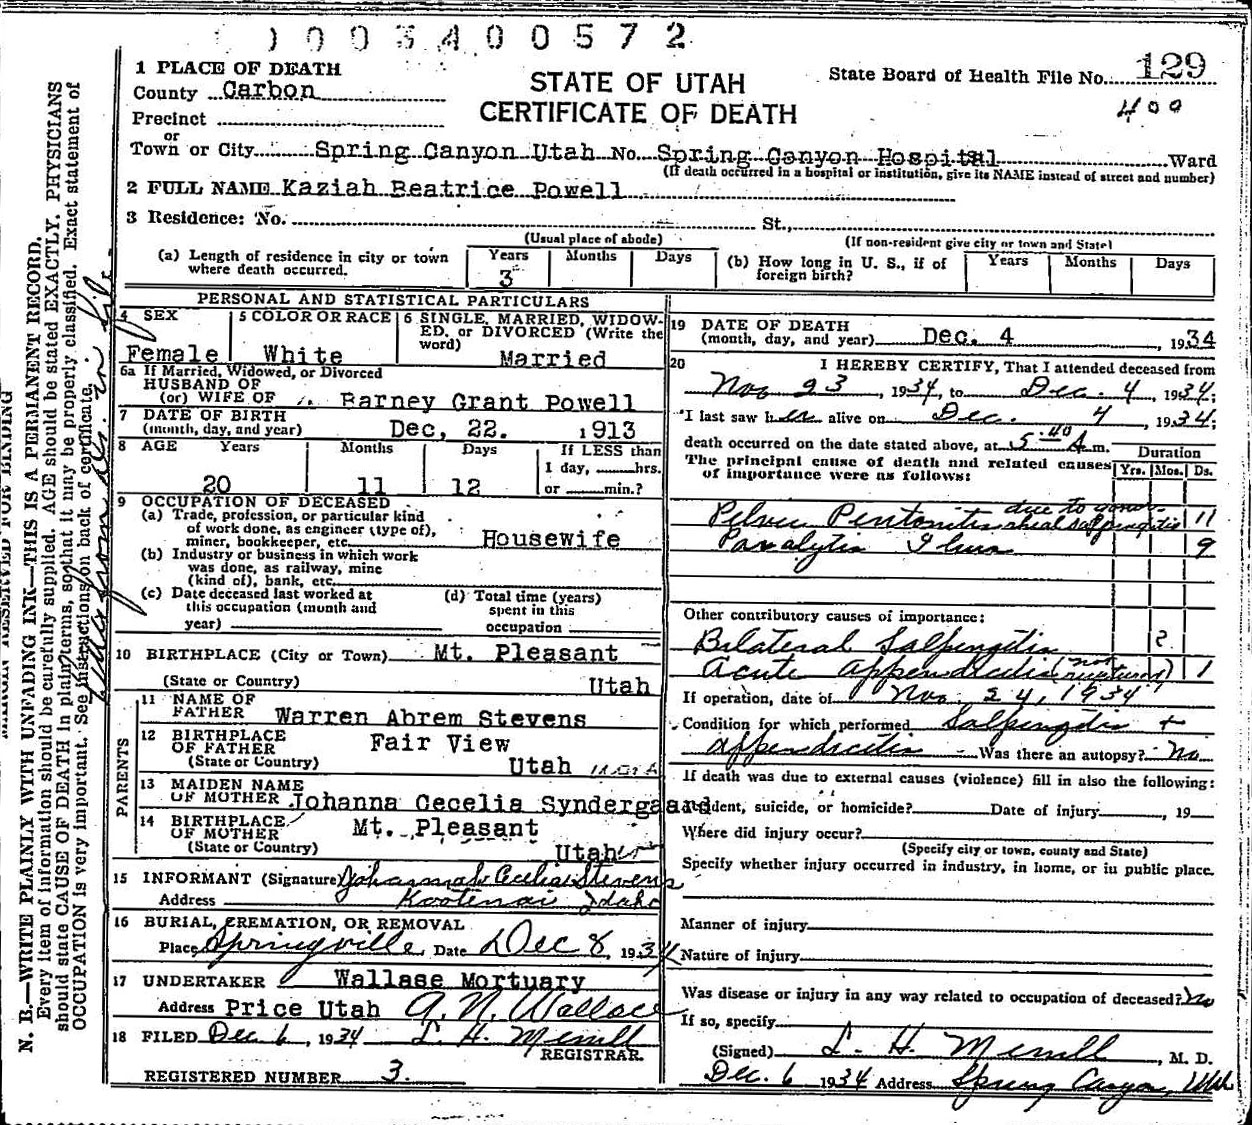 1003400572
1 PLACE OF DEATH
County Carbon
STATE OF UTAH
CERTIFICATE OF DEATH
State Board of Health File No. 129
400
Precinct
or
Town or City Spring Canyon Utah No. Spring Canyon Hospital Ward
(If death occurred in a hospital or institution, give its NAME instead of street and number)
2 FULL NAME Kaziah Beatrice Powell
3 Residence: No. St.,
(Usual place of abode) (If non-resident give city or town and State)
(a) Length of residence in city or town where death occurred. Years 3 Months Days
(b) How long in U. S., if of foreign birth? Years Months Days
PERSONAL AND STATISTICAL PARTICULARS
4 SEX Female
5 COLOR OR RACE White
6 SINGLE, MARRIED, WIDOWED, or DIVORCED (Write the word) Married
6a If Married, Widowed, or Divorced
HUSBAND OF
(or) WIFE OF Barney Grant Powell
7 DATE OF BIRTH
(month, day, and year) Dec, 22. 1913
8 AGE Years 20 Months 11 Days 12 If LESS than 1 day, hrs. or min.?
9 OCCUPATION OF DECEASED
(a) Trade, profession, or particular kind
of work done, as engineer (type of),
miner, bookkeeper, etc. Housewife
(b) Industry or business in which work
was done, as railway, mine
(kind of), bank, etc.
(c) Date deceased last worked at
this occupation (month and
year)
(d) Total time (years)
spent in this
occupation
10 BIRTHPLACE (City or Town) Mt. Pleasant
(State or Country) Utah
PARENTS
11 NAME OF
FATHER Warren Abrem Stevens
12 BIRTHPLACE
OF FATHER Fair View
(State or Country) Utah
13 MAIDEN NAME
OF MOTHER Johanna Cecelia Syndergaard
14 BIRTHPLACE
OF MOTHER Mt. Pleasant
(State or Country) Utah
15 INFORMANT (Signature) Johannah Cecelia Stevens
Address Kootenai Idaho
16 BURIAL, CREMATION, OR REMOVAL
Place Springville Date Dec 8, 1934
17 UNDERTAKER Wallase Mortuary
Address Price Utah A. N. Wallace
18 FILED Dec 6, 1934 L. H. Merrill
REGISTRAR.
REGISTERED NUMBER 3.
19 DATE OF DEATH
(month, day, and year) Dec. 4, 1934
20 I HEREBY CERTIFY, That I attended deceased from
Nov 23, 1934, to Dec. 4, 1934;
I last saw her alive on Dec. 4, 1934;
death occurred on the date stated above, at 5:40 A m.
The principal cause of death and related causes
of importance were as follows:
Duration
Yrs. Mos. Ds.
due to gonor-
Pelvic Peritonitis rheal salpingitis 11
Paralytic Ileus 9
Other contributory causes of importance:
Bilateral Salpingitis 2
Acute appendicitis (not ruptured) 1
If operation, date of Nov. 24, 1934
Condition for which performed Salpingitis +
appendicitis Was there an autopsy? No
If death was due to external causes (violence) fill in also the following:
Accident, suicide, or homicide? Date of injury, 19
Where did injury occur?
(Specify city or town, county and State)
Specify whether injury occurred in industry, in home, or in public place.
Manner of injury
Nature of injury
Was disease or injury in any way related to occupation of deceased? No
If so, specify
(Signed) L. H. Merrill, M. D.
Dec. 6 1934 Address Spring Canyon, Utah
MARGIN RESERVED FOR BINDING
N. B.—WRITE PLAINLY WITH UNFADING INK—THIS IS A PERMANENT RECORD.
Every item of information should be carefully supplied. AGE should be stated EXACTLY. PHYSICIANS
should state CAUSE OF DEATH in plain terms, so that it may be properly classified. Exact statement of
OCCUPATION is very important. See instructions on back of certificate.